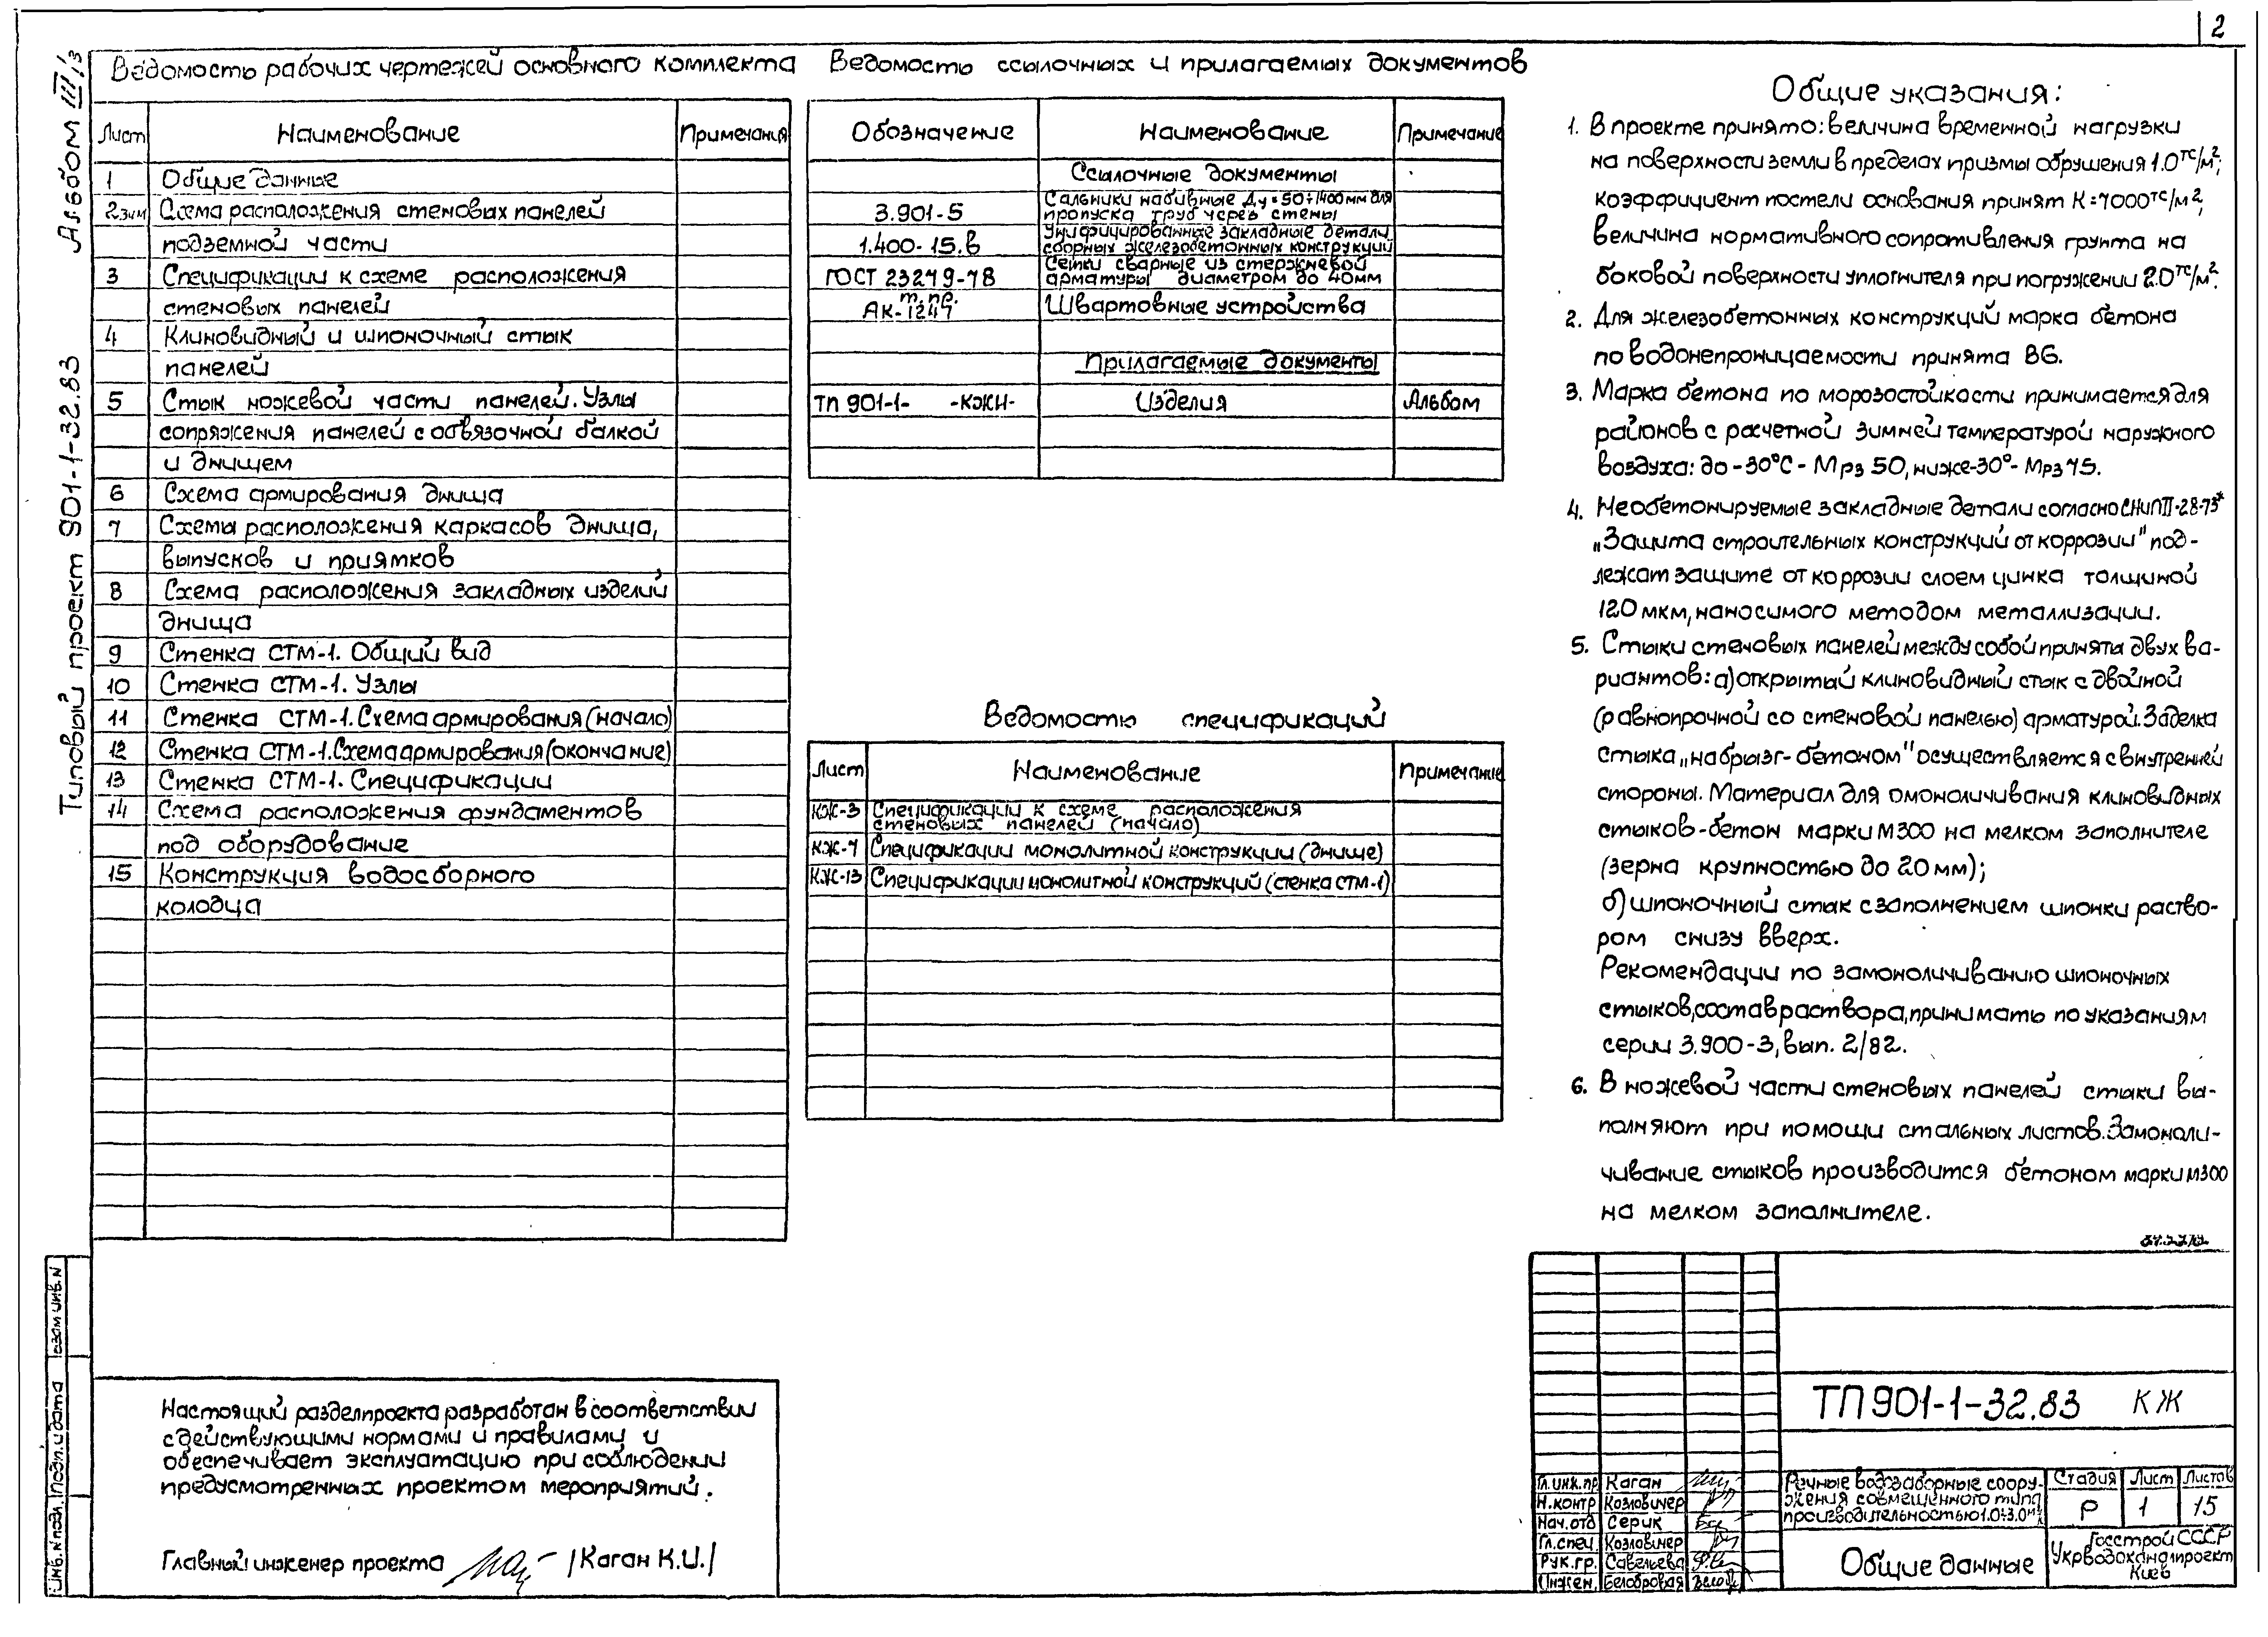 2
Альбом III/3
Типовый проект 901-1-32.83
Ведомость рабочих чертежей основного комплекта
Лист Наименование Примечания
1 Общие данные
2 Схема расположения стеновых панелей
подземной части
3 Спецификации к схеме расположения
стеновых панелей
4 Клиновидный и шпоночный стык
панелей
5 Стык ножевой части панелей. Узлы
сопряжения панелей с обвязочной балкой
и днищем
6 Схема армирования днища
7 Схемы расположения каркасов днища,
выпусков и приямков
8 Схема расположения закладных изделий
днища
9 Стенка СТМ-1. Общий вид
10 Стенка СТМ-1. Узлы
11 Стенка СТМ-1. Схема армирования (начало)
12 Стенка СТМ-1. Схема армирования (окончание)
13 Стенка СТМ-1. Спецификации
14 Схема расположения фундаментов
под оборудование
15 Конструкция водосборного
колодца
Ведомость ссылочных и прилагаемых документов
Обозначение Наименование Примечание
Ссылочные документы
3.901-5 Сальники набивные Ду=50÷1400мм для
пропуска труб через стены
1.400-15.В Унифицированные закладные детали
сборных железобетонных конструкций
ГОСТ 23279-78 Сетки сварные из стержневой
арматуры диаметром до 40мм
т.пр.
АК-1247 Швартовные устройства
Прилагаемые документы
ТП 901-1- -КЖИ- Изделия Альбом
Ведомость спецификаций
Лист Наименование Примечание
КЖ-3 Спецификации к схеме расположения
стеновых панелей (начало)
КЖ-7 Спецификации монолитной конструкции (днище)
КЖ-13 Спецификации монолитной конструкций (стенка СТМ-1)
Общие указания:
1. В проекте принято: величина временной нагрузки
на поверхности земли в пределах призмы обрушения 1.0 тс/м²;
коэффициент постели основания принят К=7000 тс/м²,
величина нормативного сопротивления грунта на
боковой поверхности уплотнителя при погружении 2.0 тс/м².
2. Для железобетонных конструкций марка бетона
по водонепроницаемости принята В6.
3. Марка бетона по морозостойкости принимается для
районов с расчетной зимней температурой наружного
воздуха: до -30°С - Мрз 50, ниже -30° - Мрз 75.
4. Необетонируемые закладные детали согласно СНиП II-28-73*
„Защита строительных конструкций от коррозии" под-
лежат защите от коррозии слоем цинка толщиной
120 мкм, наносимого методом металлизации.
5. Стыки стеновых панелей между собой приняты двух ва-
риантов: а) открытый клиновидный стык с двойной
(равнопрочной со стеновой панелью) арматурой. Заделка
стыка „набрызг-бетоном" осуществляется с внутренней
стороны. Материал для омоноличивания клиновидных
стыков - бетон марки М300 на мелком заполнителе
(зерна крупностью до 20 мм);
б) шпоночный стык с заполнением шпонки раство-
ром снизу вверх.
Рекомендации по замоноличиванию шпоночных
стыков, состав раствора, принимать по указаниям
серии 3.900-3, вып. 2/82.
6. В ножевой части стеновых панелей стыки вы-
полняют при помощи стальных листов. Замоноли-
чивание стыков производится бетоном марки М300
на мелком заполнителе.
Настоящий раздел проекта разработан в соответствии
с действующими нормами и правилами и
обеспечивает эксплуатацию при соблюдении
предусмотренных проектом мероприятий.
Главный инженер проекта /Каган К.И./
Инв. N подл. Подп. и дата Взам инв. N
ТП 901-1-32.83 КЖ
Гл. инж. пр Каган
Н. контр Козловинер
Нач. отд Серик
Гл. спец. Козловинер
Рук. гр. Савельева
Инжен. Белобровая
Речные водозаборные соору-
жения совмещенного типа
производительностью 1.0÷3.0 м³/с
Стадия Лист Листов
Р 1 15
Общие данные
Госстрой СССР
Укрводоканалпроект
Киев